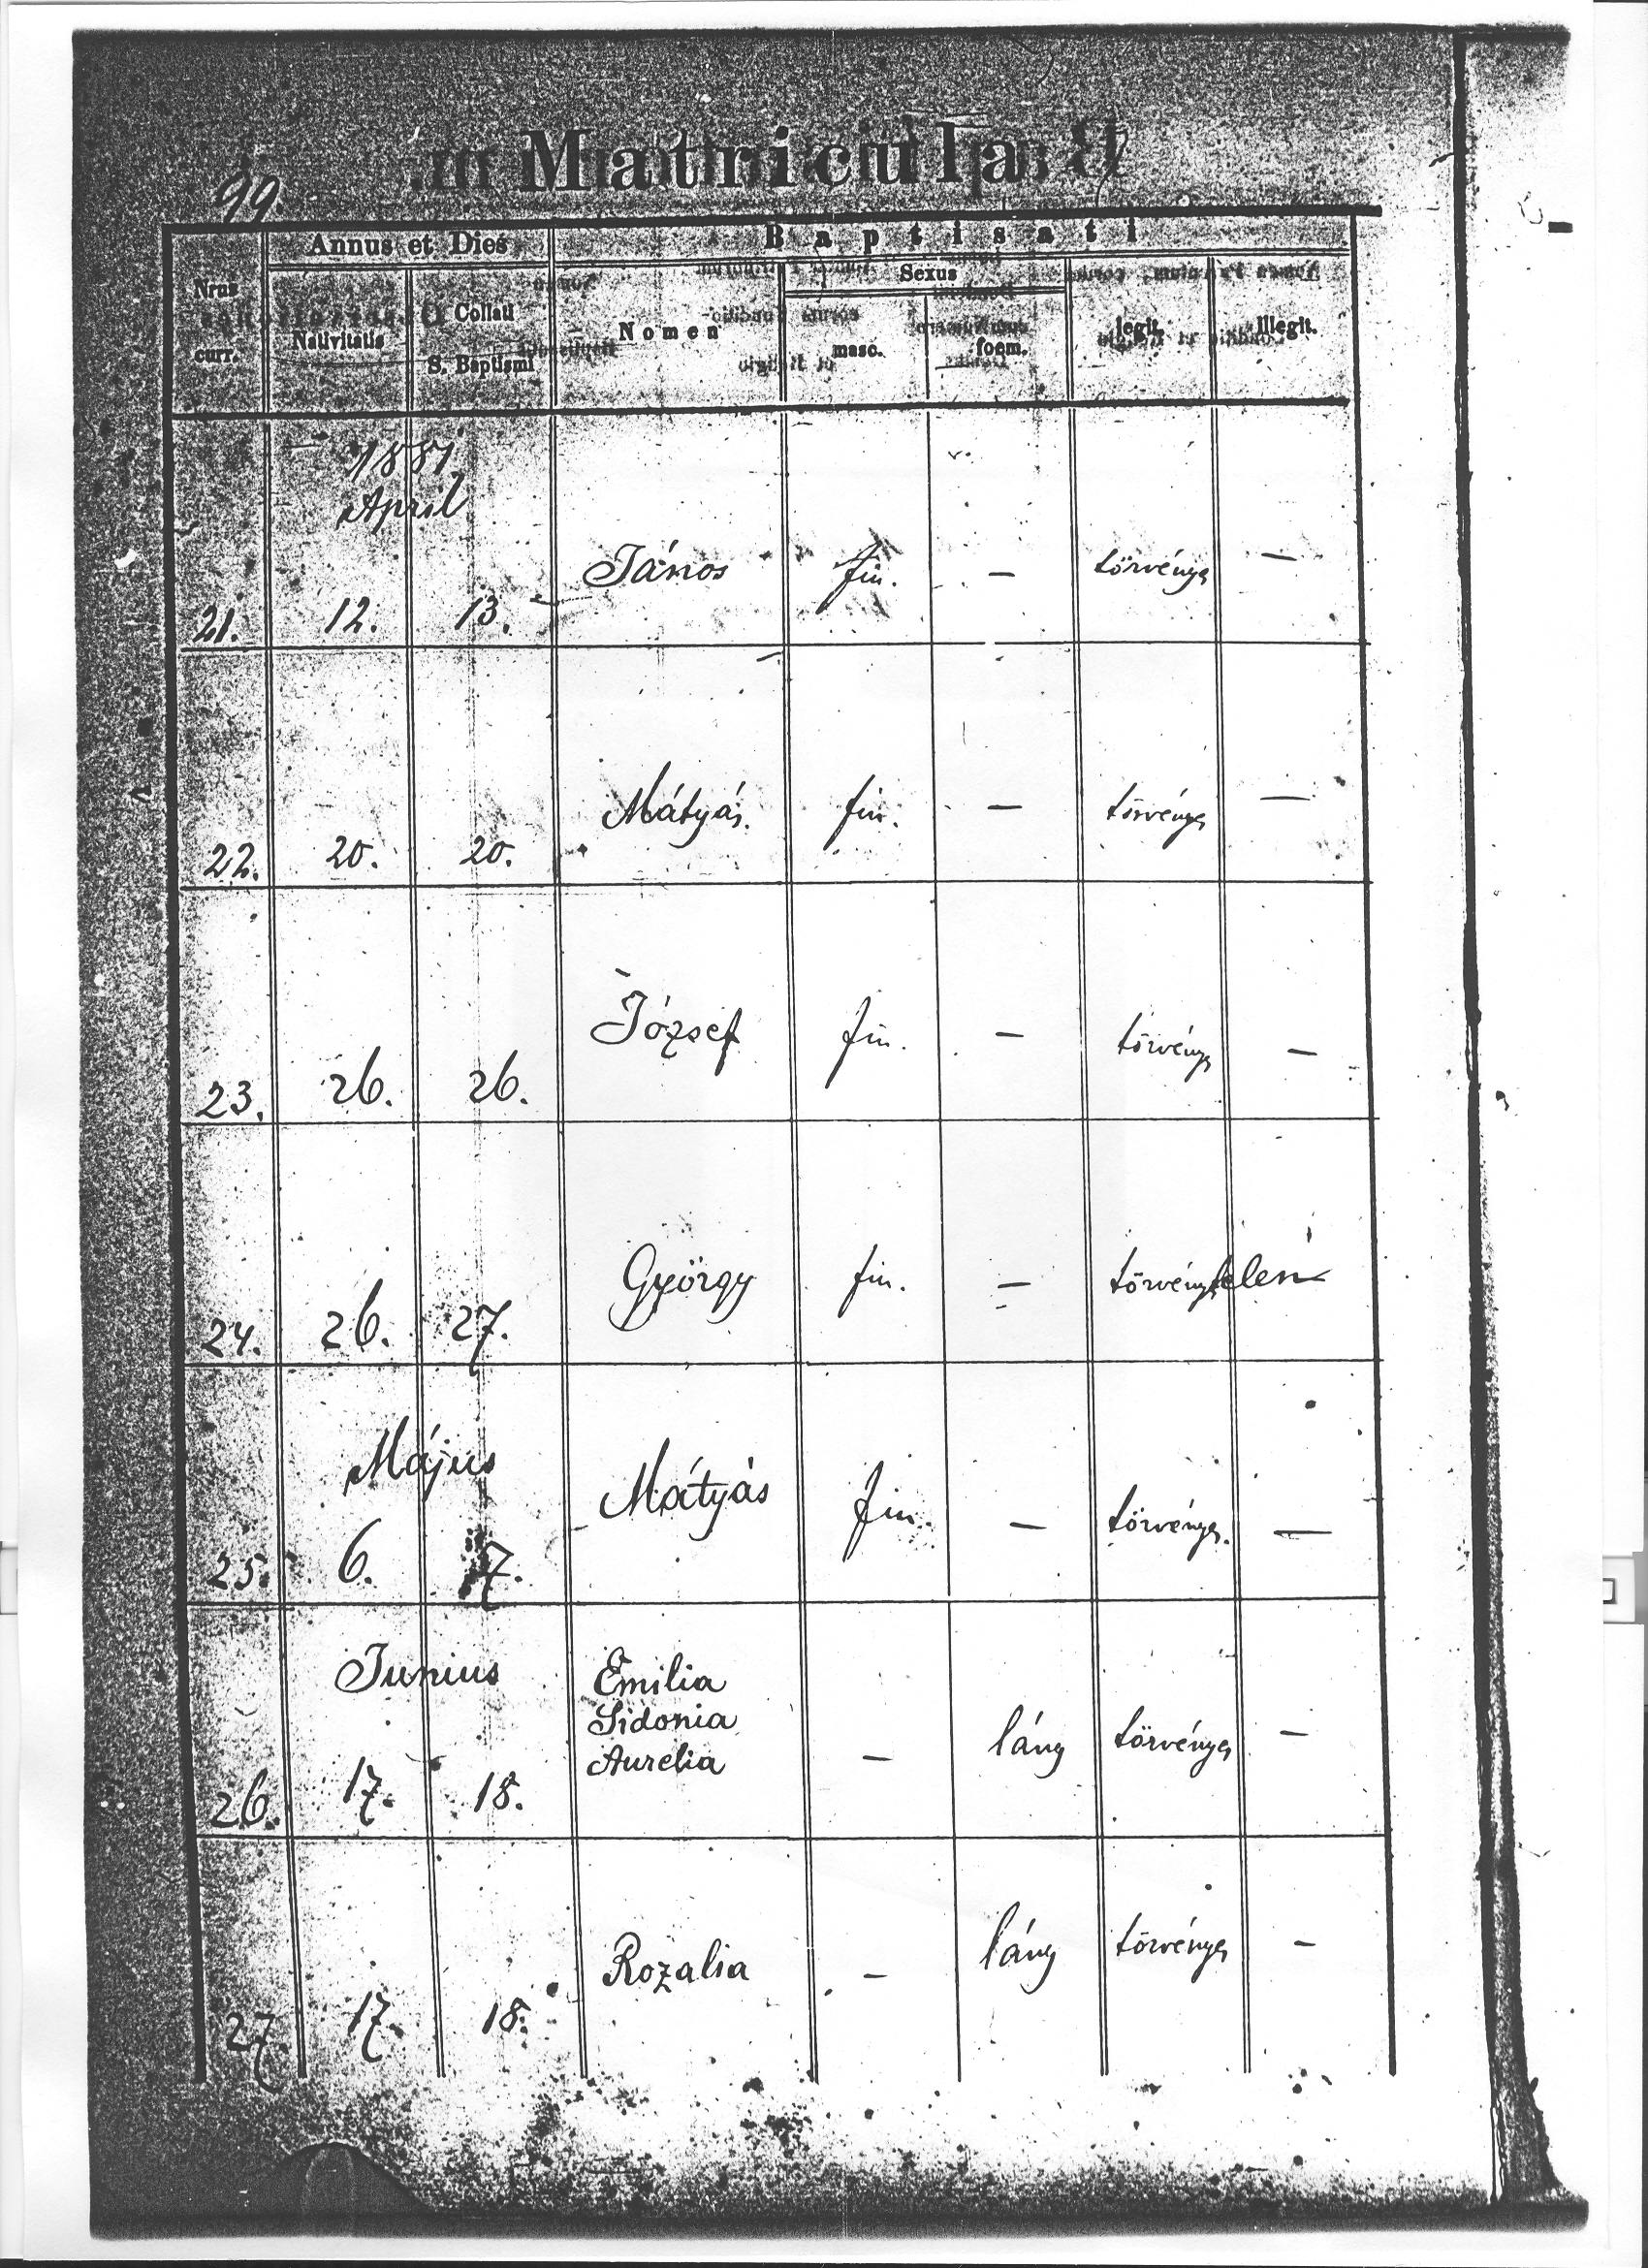 Matricula
99.
Annus et Dies
Baptisati
Nrus curr.
Nativitatis
Collati S. Baptismi
Nomen
Sexus
masc.
foem.
legit.
illegit.
1881
April
21. 12. 13. János fiú. — törvényes —
22. 20. 20. Mátyás. fiú. — törvényes —
23. 26. 26. József fiú. — törvényes —
24. 26. 27. György fiú. — törvénytelen
Május
25. 6. 7. Mátyás fiú. — törvényes. —
Junius
Emilia
Sidonia
Aurelia
26. 17. 18. — lány törvényes —
27. 17. 18. Rozalia — lány törvényes —